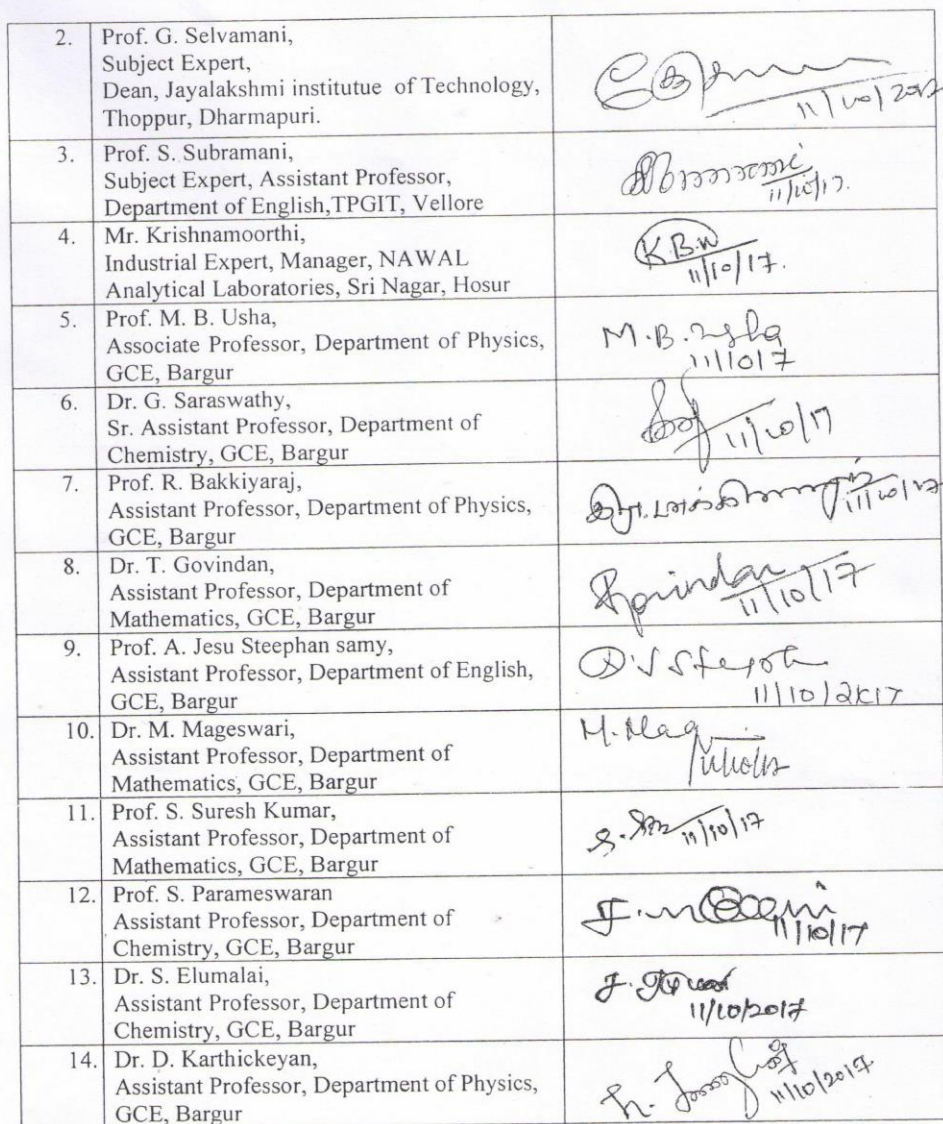 2. Prof. G. Selvamani,
Subject Expert,
Dean, Jayalakshmi institutue of Technology,
Thoppur, Dharmapuri.
11/10/2017
3. Prof. S. Subramani,
Subject Expert, Assistant Professor,
Department of English,TPGIT, Vellore
11/10/17.
4. Mr. Krishnamoorthi,
Industrial Expert, Manager, NAWAL
Analytical Laboratories, Sri Nagar, Hosur
K.B.N
11/10/17.
5. Prof. M. B. Usha,
Associate Professor, Department of Physics,
GCE, Bargur
M.B. Usha
11/10/7
6. Dr. G. Saraswathy,
Sr. Assistant Professor, Department of
Chemistry, GCE, Bargur
11/10/17
7. Prof. R. Bakkiyaraj,
Assistant Professor, Department of Physics,
GCE, Bargur
11/10/17
8. Dr. T. Govindan,
Assistant Professor, Department of
Mathematics, GCE, Bargur
Govindan
11/10/17
9. Prof. A. Jesu Steephan samy,
Assistant Professor, Department of English,
GCE, Bargur
11/10/2K17
10. Dr. M. Mageswari,
Assistant Professor, Department of
Mathematics, GCE, Bargur
M. Mag
11/10/17
11. Prof. S. Suresh Kumar,
Assistant Professor, Department of
Mathematics, GCE, Bargur
11/10/17
12. Prof. S. Parameswaran
Assistant Professor, Department of
Chemistry, GCE, Bargur
11/10/17
13. Dr. S. Elumalai,
Assistant Professor, Department of
Chemistry, GCE, Bargur
11/10/2017
14. Dr. D. Karthickeyan,
Assistant Professor, Department of Physics,
GCE, Bargur
11/10/2017